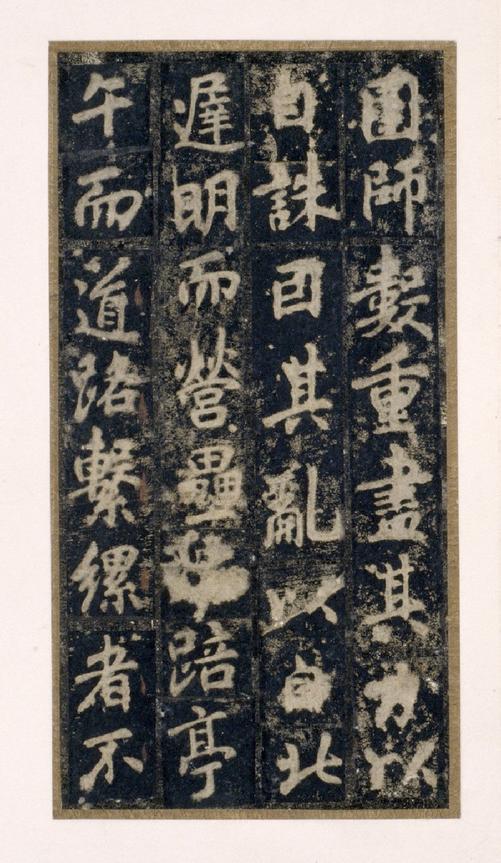 圍師數重盡其力以
自誅因其亂以自北
遲明而營壘
踣亭
午而道路繫縲者不